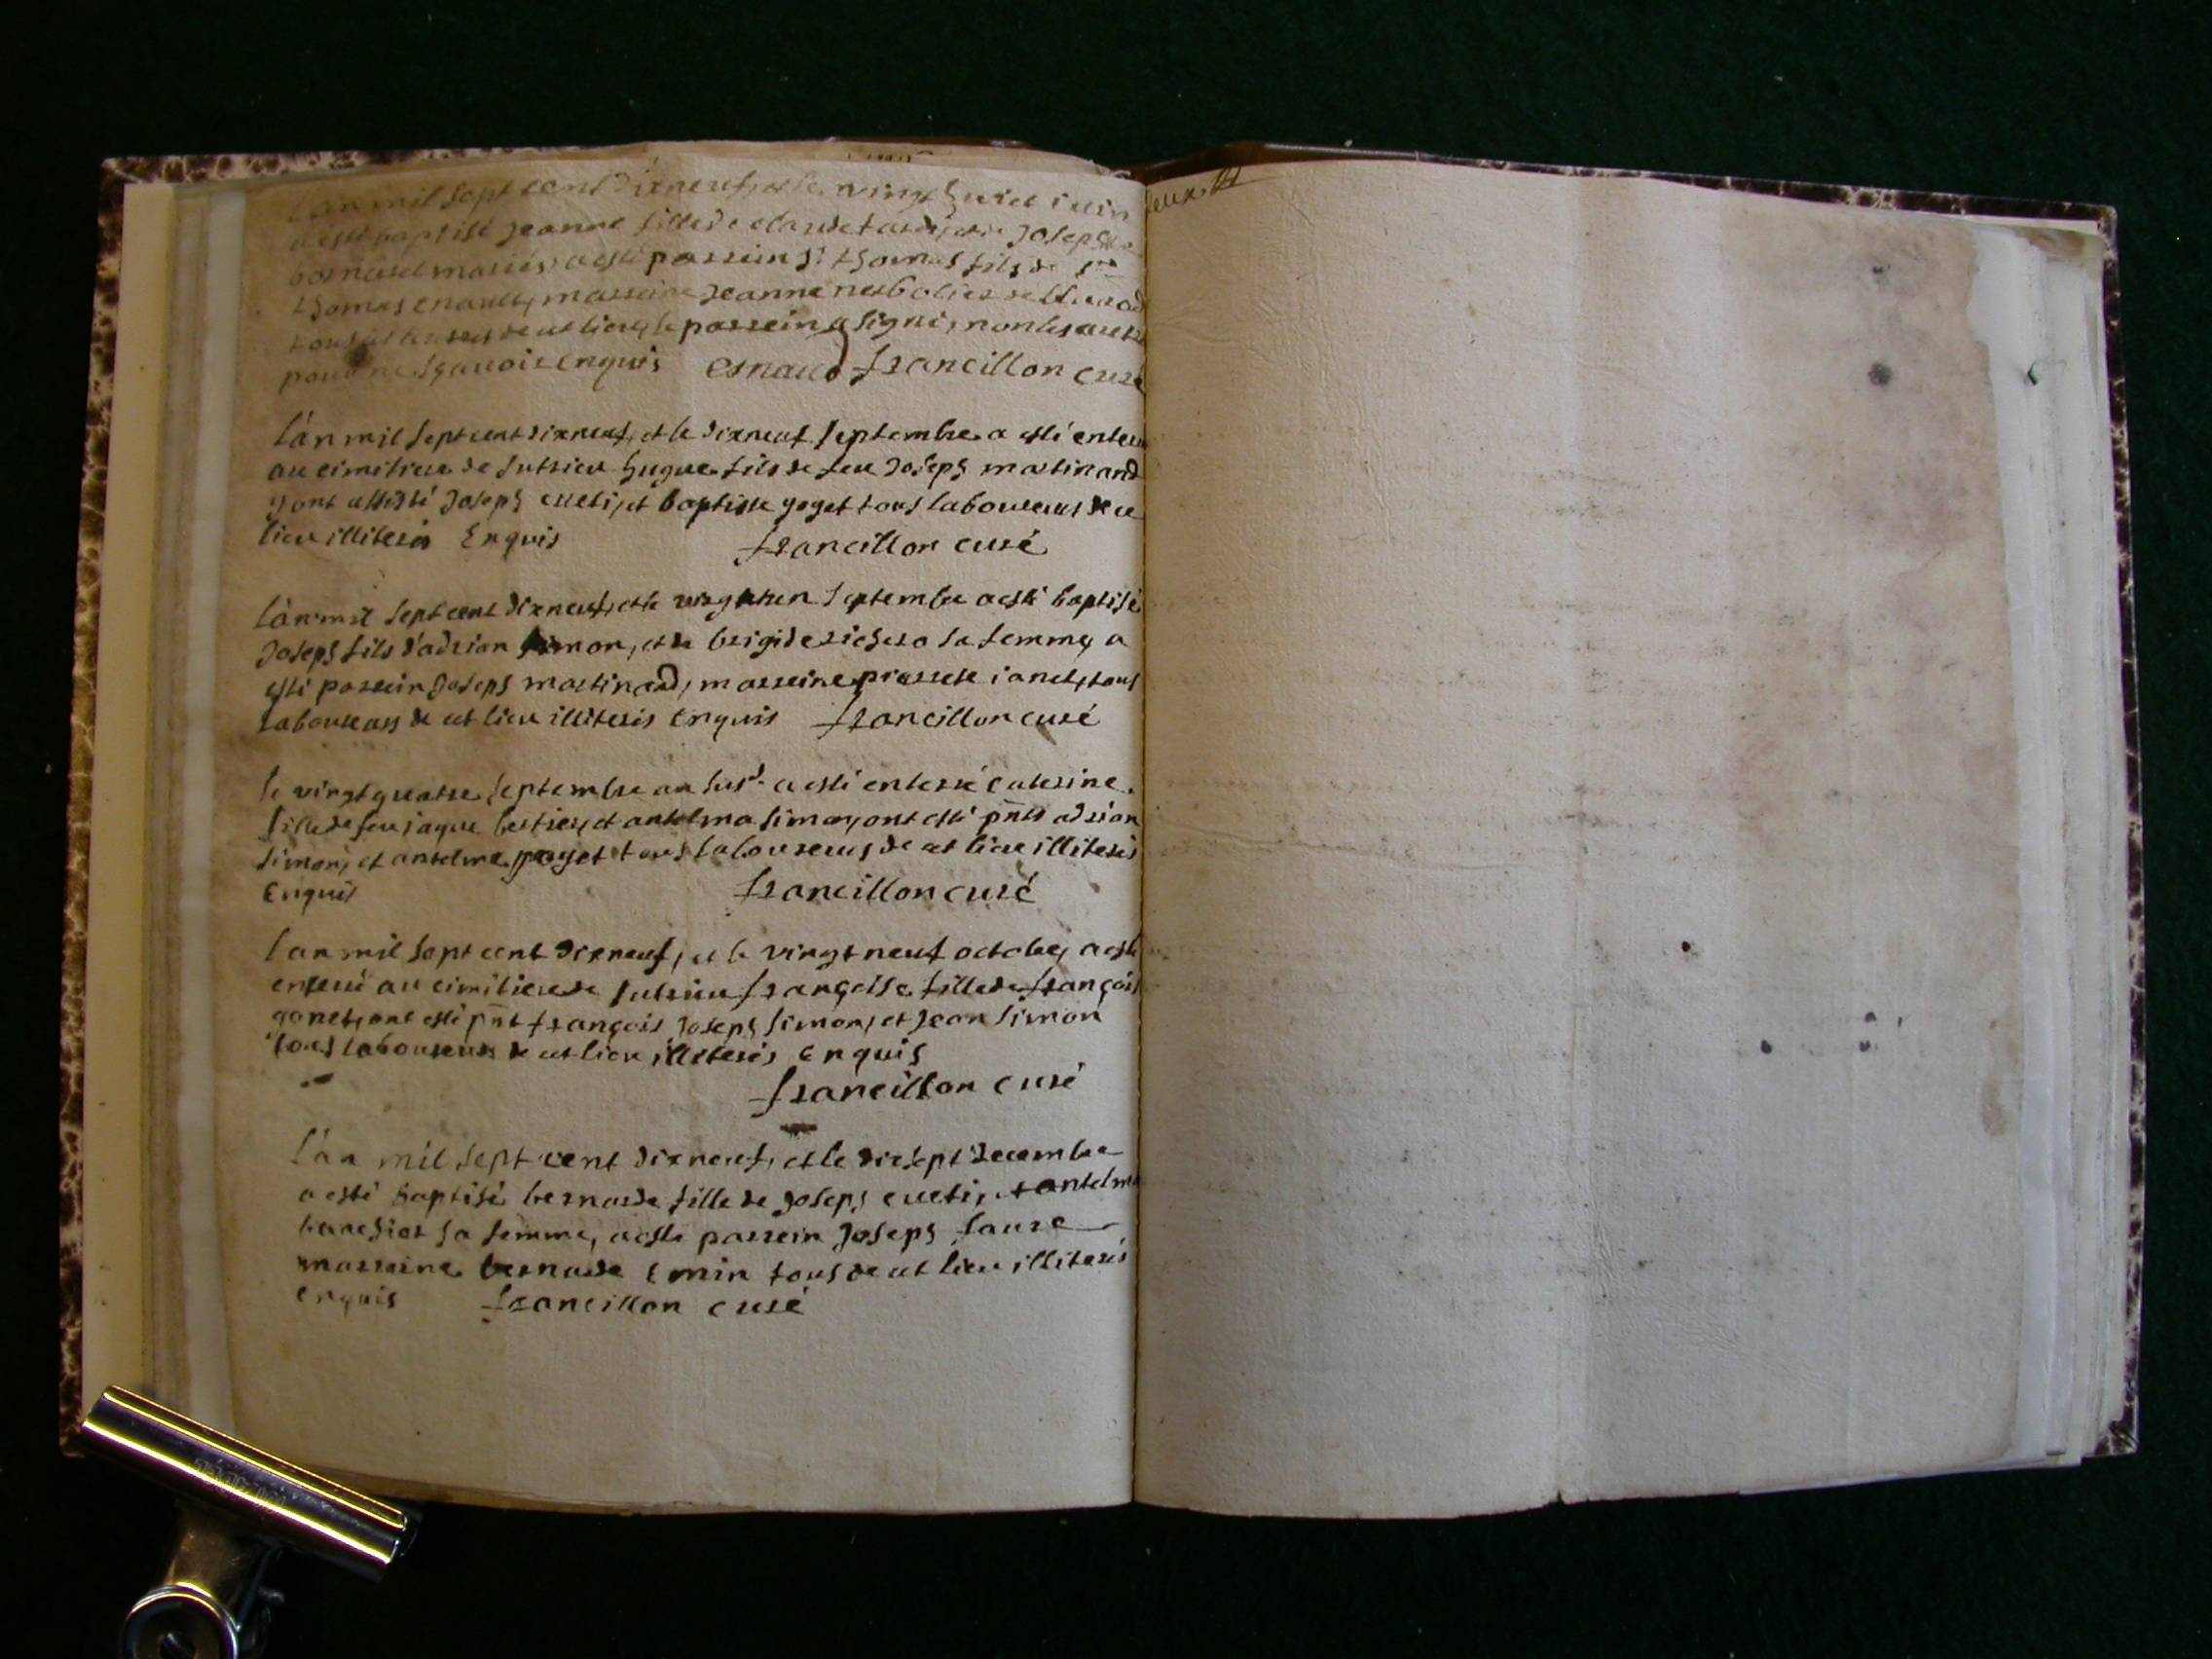 L'an mil sept cent dixneuf, et le vingt huict iuin
a esté baptisé Jeanne fille de claude tardi, et de Joseph
mariés, a esté parrein Sr thomas fils de Sr
thomas enaud, marreine Jeanne
tous de cet lieu, le parrein a signé, non les autres
pour ne sçauoir enquis esnaud francillon curé
L'an mil sept cent dixneuf, et le dixneuf septembre a esté enterré
au cimitiere de sutrieu hugue fils de feu Joseph martinand
y ont assisté Joseph cueti, et baptiste goget tous laboureurs de ce
lieu illiterés Enquis francillon curé
L'an mil sept cent dixneuf, et le septembre a esté baptisé
Joseph fils d'adrian simon, et de brigide richero sa femme, a
esté parrein Joseph martinand, marreine pierrete ianet, tous
laboureurs de cet lieu illiterés Enquis francillon curé
le vingt quatre septembre an susd. a esté enterré caterine
fille de feu iaque bertier, et antelma simon, ont esté pñts adrian
simon, et antelme poget tous laboureurs de cet lieu illiterés
Enquis francillon curé
L'an mil sept cent dixneuf, et le vingt neuf octobre, a esté
enterré au cimitiere de sutrieu françoise fille de françois
ganet, ont esté pñt françois Joseph simon, et Jean simon
tous laboureurs de cet lieu illiterés Enquis
francillon curé
L'an mil sept cent dixneuf, et le dixsept decembre
a esté baptisé bernarde fille de Joseph cueti, et antelma
sa femme, a esté parrein Joseph faure
marreine bernarde emin tous de cet lieu illiterés
enquis francillon curé